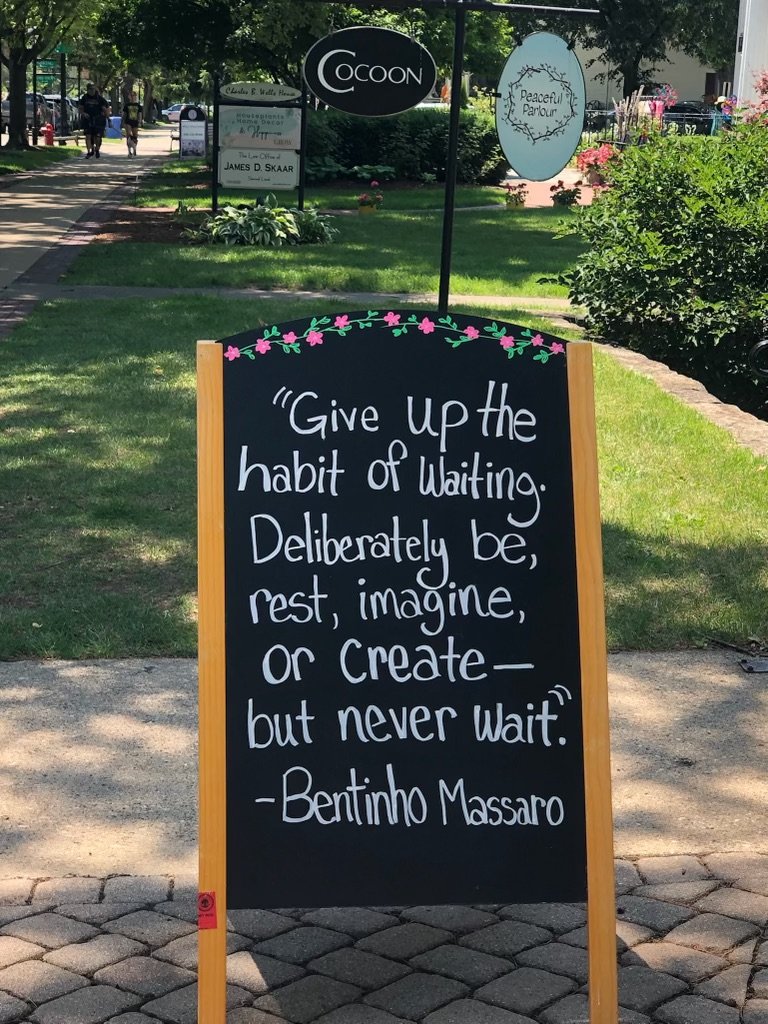 COCOON
Peaceful
Parlour
Charles B. Wells House
Houseplants
Home Decor
& Happiness
The Law Office of
JAMES D. SKAAR
Second Level
“Give up the
habit of Waiting.
Deliberately be,
rest, imagine,
or Create—
but never Wait.”
-Bentinho Massaro